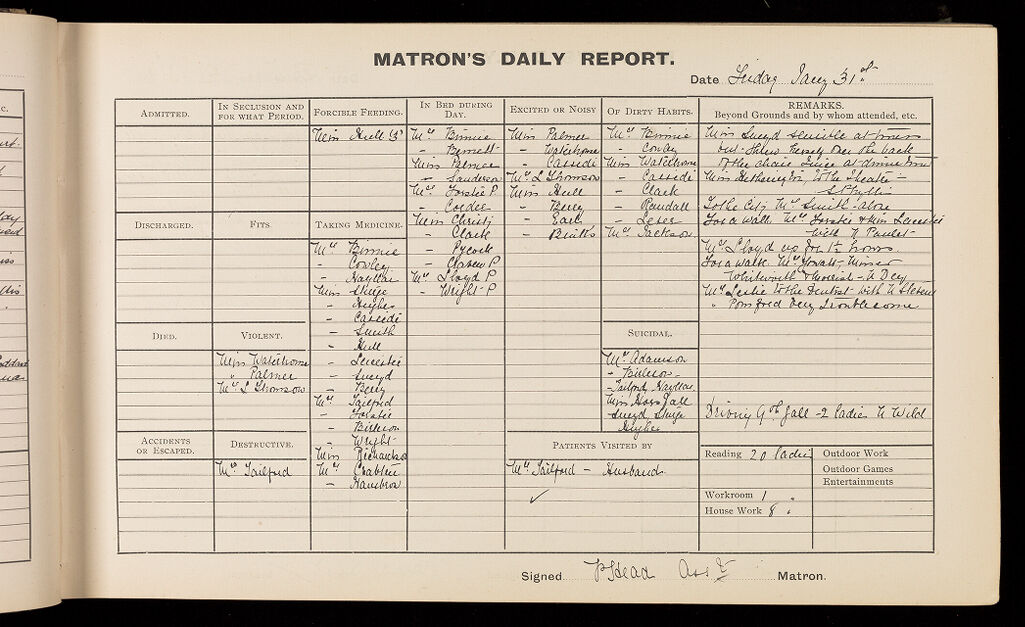 MATRON'S DAILY REPORT.
Date Friday Jany 31st
ADMITTED.
IN SECLUSION AND
FOR WHAT PERIOD.
FORCIBLE FEEDING.
Miss Hull
IN BED DURING
DAY.
Mrs Binnie
- Bennett
Miss Palmer
- Sanderson
Mrs Forstie P
- Corder
Miss Christi
- Clark
- Pycock
Mrs Lloyd P
- Wright P
EXCITED OR NOISY
Miss Palmer
- Waterhouse
- Cassidi
Mrs L Thomson
Miss Hull
- Berry
- Earl
OF DIRTY HABITS.
Mrs Binnie
- Conway
Miss Waterhouse
- Cassidi
- Clark
- Randall
- Leser
Mrs Jackson
REMARKS.
Beyond Grounds and by whom attended, etc.
Miss Sneyd sensible at times
but threw herself over the back
of the chair twice at dinner time
Miss Hetherington, to the Theatre -
S Phyllis
To the City Mrs Smith - alone
For a walk Mrs Forstie & Miss Leicester
with N Paulet
Mrs Lloyd up for 1½ hours.
For a walk. Mrs Misses
Whitworth & N Dey
Mrs Leslie to the Dentist with N Stevens
" Ponsford Very Troublesome
Driving 9 of Gall - 2 ladies N Wild
DISCHARGED.
FITS
TAKING MEDICINE.
Mrs Binnie
- Cowley
- Hayllar
Miss
- Hughes
- Cassidi
- Smith
- Hull
- Leicester
- Sneyd
- Berry
Mrs Tailford
- Forstie
- Billeson
- Wright
Miss Richardson
Mrs Crabtree
DIED.
VIOLENT.
Miss Waterhouse
" Palmer
Mrs L Thomson
SUICIDAL.
Mrs Adamson
- Billeson -
- Tailford, Hayllar
Miss Horsfall
Hughes
ACCIDENTS
OR ESCAPED.
DESTRUCTIVE.
Mrs Tailford
PATIENTS VISITED BY
Mrs Tailford - Husband
✓
Reading 20 ladies
Outdoor Work
Outdoor Games
Entertainments
Workroom 1 "
House Work 8 "
Signed P Head Asst Matron.